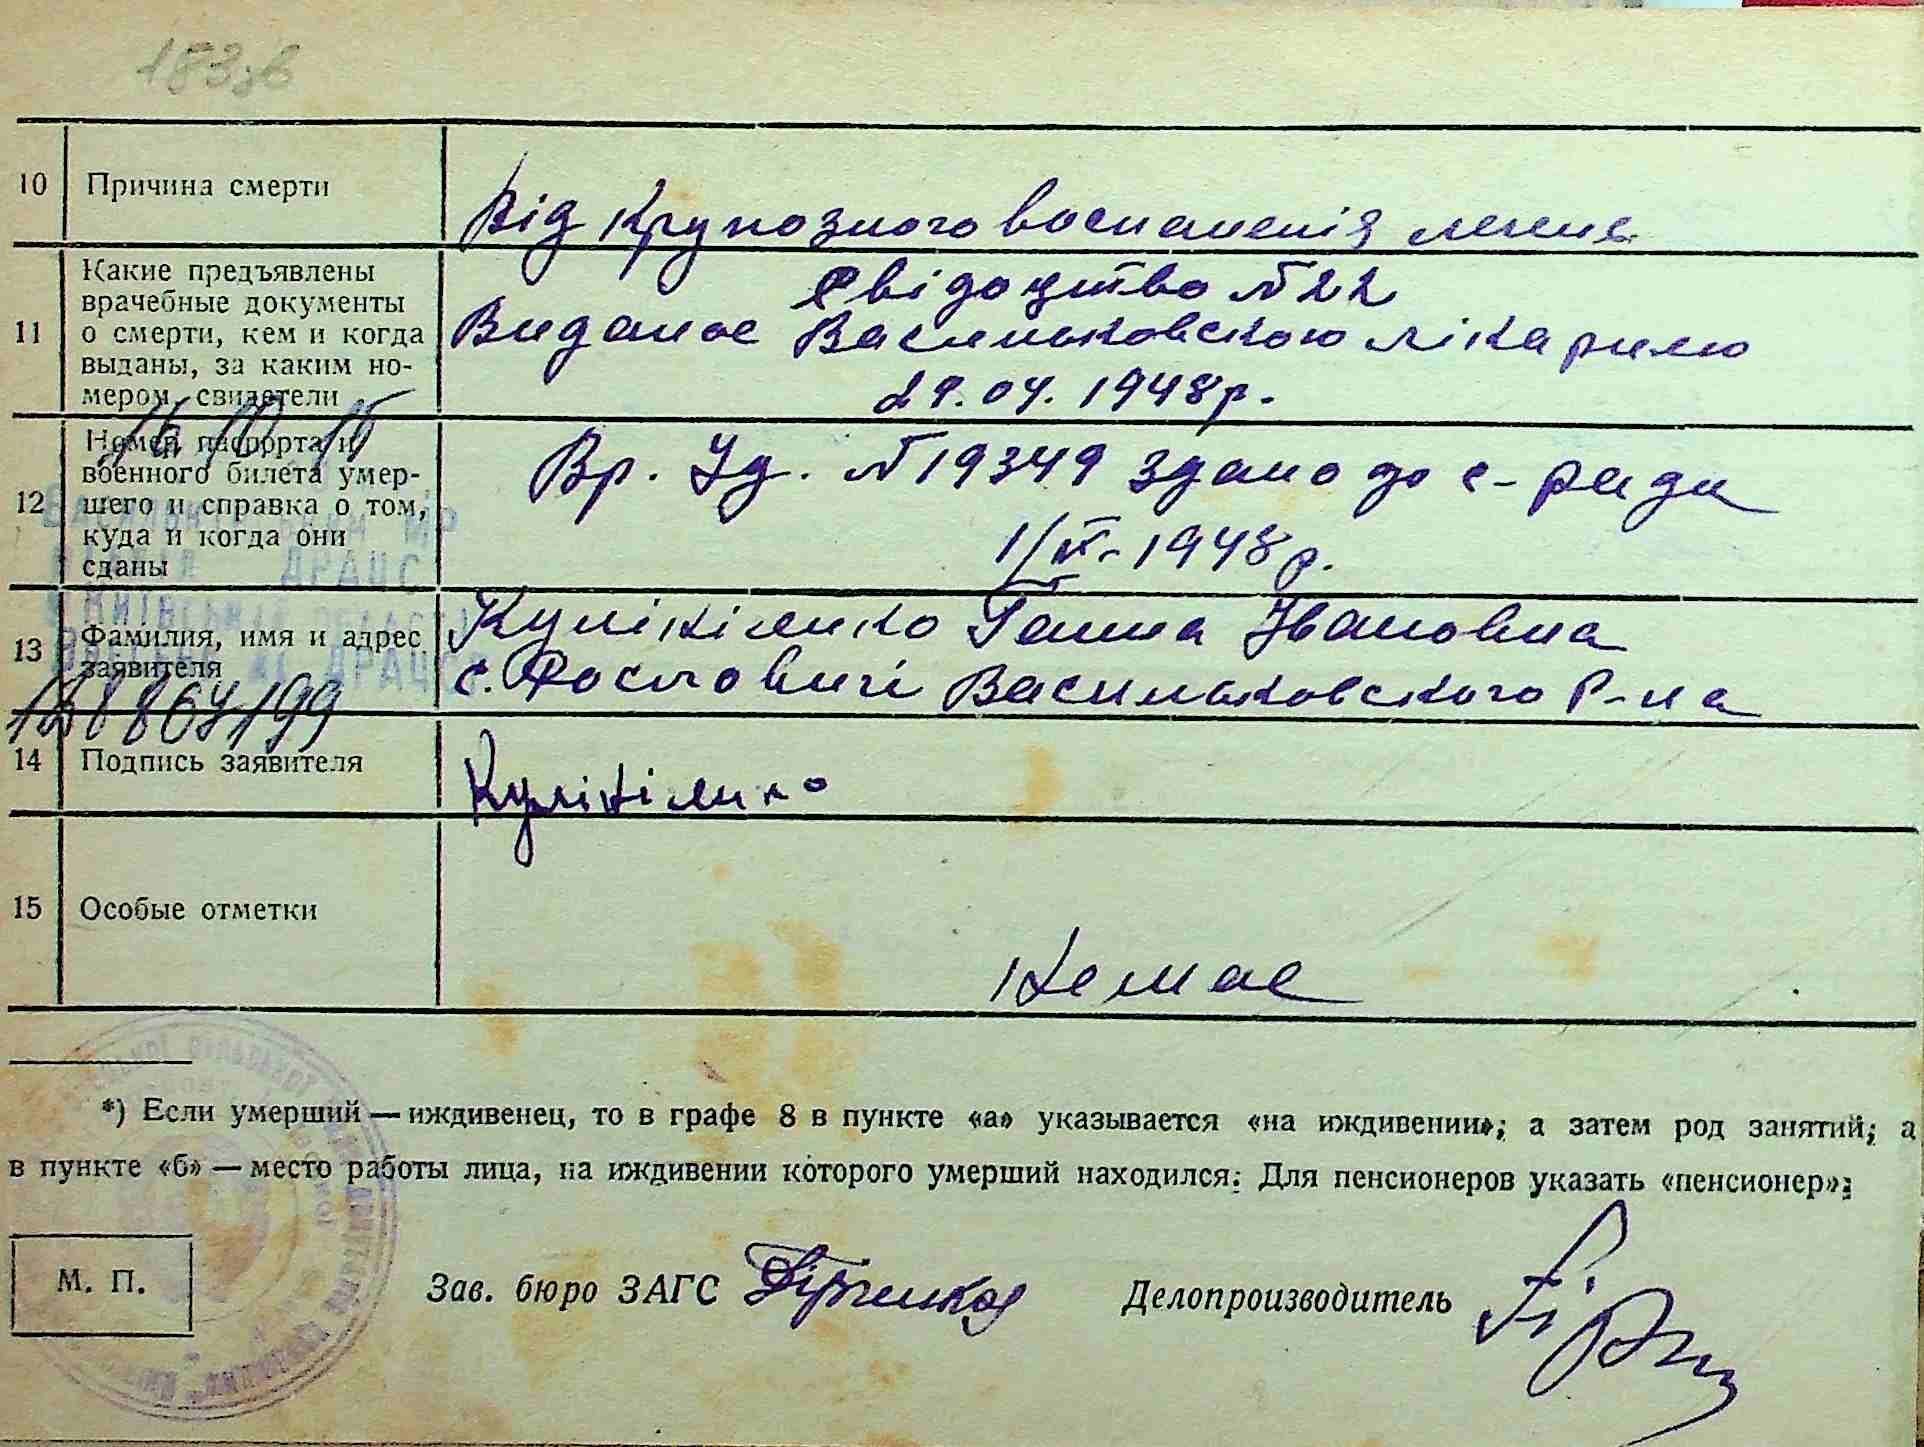 183зв
10 Причина смерти
Від Крупозного воспаленія легень
11 Какие предъявлены
врачебные документы
о смерти, кем и когда
выданы, за каким но-
мером, свидетели
Свідоцтво №22
Видание Васильковскою лікарнею
29.04.1948р.
12 Номер паспорта и
военного билета умер-
шего и справка о том,
куда и когда они
сданы
Вр. Уд. №19349 здано до с-ради
1/V-1948р.
13 Фамилия, имя и адрес
заявителя
Кулікіленко Ганна Івановна
с. Рославичі Васильковского Р-на
14 Подпись заявителя
15 Особые отметки
Немае
*) Если умерший — иждивенец, то в графе 8 в пункте «а» указывается «на иждивении»; а затем род занятий; а
в пункте «б» — место работы лица, на иждивении которого умерший находился: Для пенсионеров указать «пенсионер»;
М. П.
Зав. бюро ЗАГС
Делопроизводитель